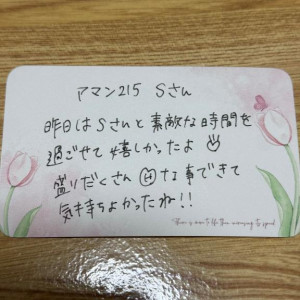 アマン215 Sさん
昨日はSさんと素敵な時間を
過ごせて嬉しかったよ
盛りだくさんHな事できて
気持ちよかったね!!
There is more to life than increasing its speed